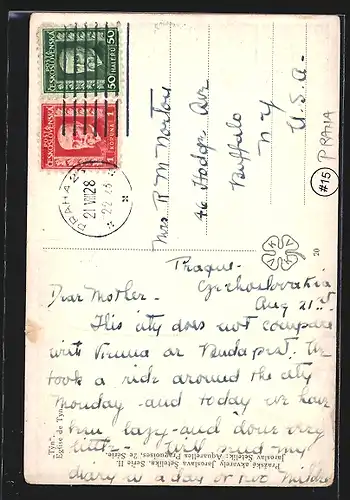 ČESKOSLOVENSKÁ
50 HALÉŘŮ 50
ČESKOSLOVENSKÁ
1 KORUNA 1
PRAHA
21.VIII.28
22-23
Mrs R M Norton
46 Hodge Ave
Buffalo
N Y
U.S.A-
#15 PRAHA
20
Prague-
Czechoslovakia
Aug 21st
Dear Mother-
This city does not compare
with Vienna or Budapest. We
took a ride around the city
Monday - and today we have
been lazy - and done very
little - Will send my
diary in a day or two
"Týn".
Eglise de Tyn.
Pražské akvarely Jaroslava Šetelíka, Serie II.
Jaroslav Šetelík: Aquarelles Pragnoises, 2e Série.